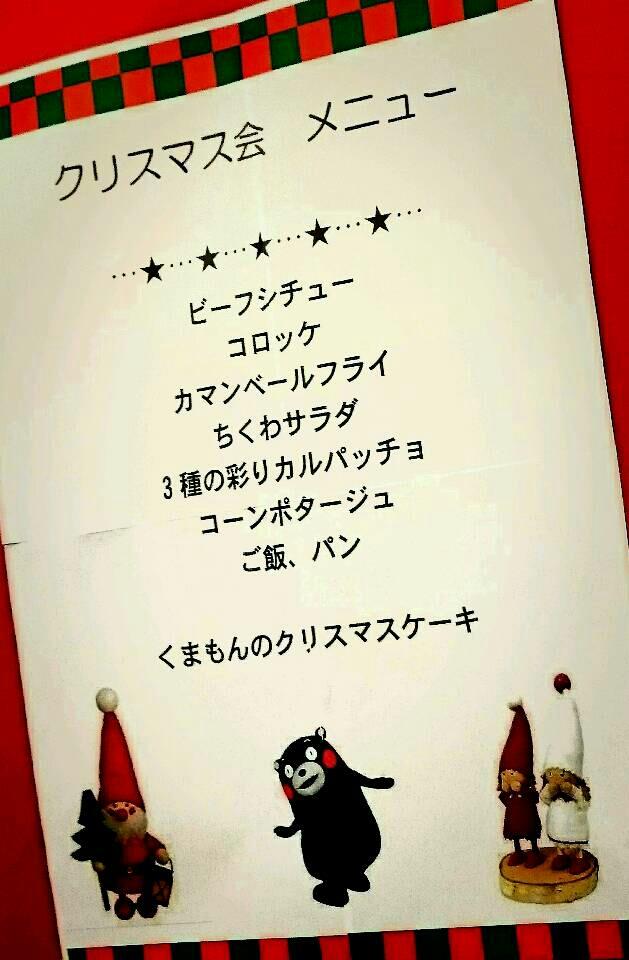 クリスマス会　メニュー
…★…★…★…★…★…
ビーフシチュー
コロッケ
カマンベールフライ
ちくわサラダ
3種の彩りカルパッチョ
コーンポタージュ
ご飯、パン
くまもんのクリスマスケーキ